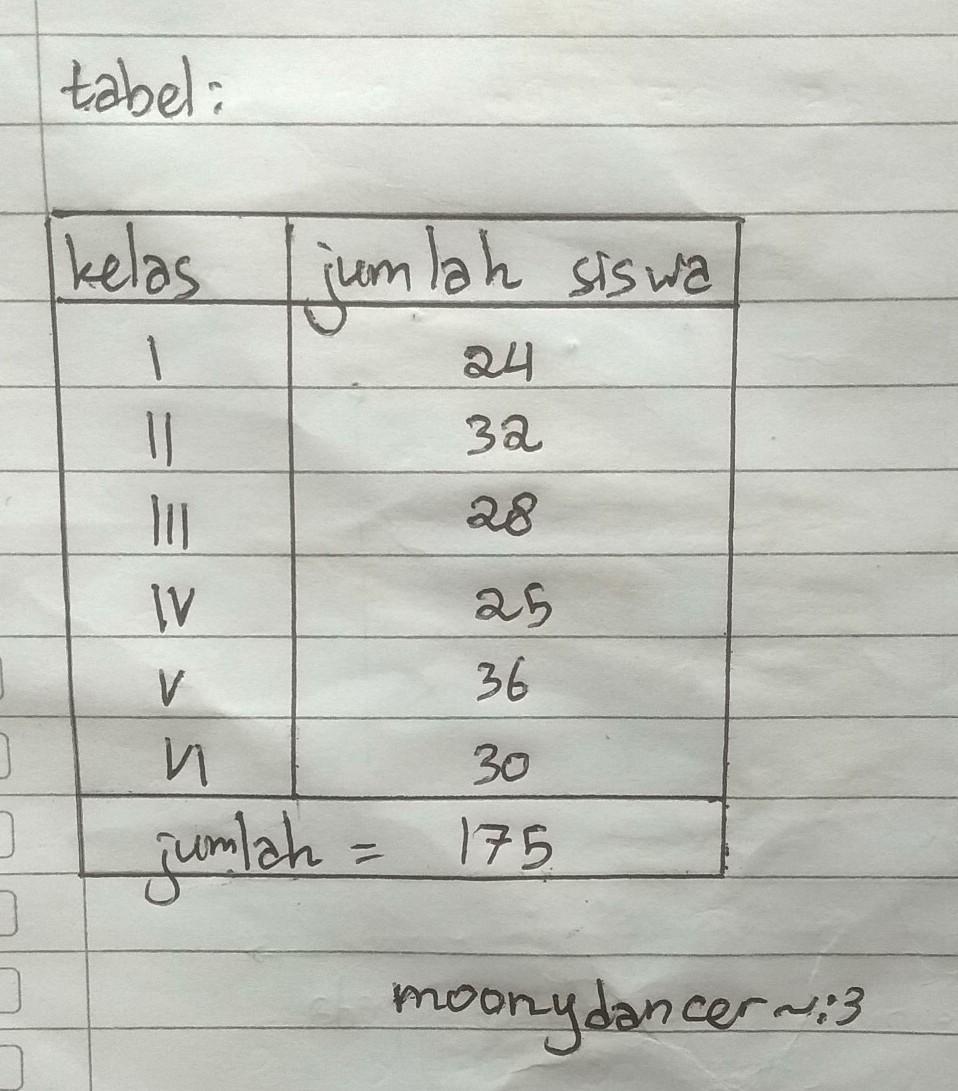 tabel:
kelas jumlah siswa
I 24
II 32
III 28
IV 25
V 36
VI 30
jumlah = 175
moonydancer~:3